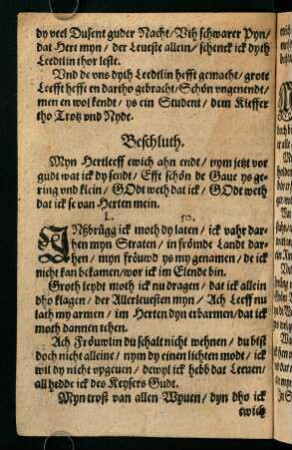 dy veel Dusent guder Nacht/ Vth schwarer Pyn/
dat Hert myn/ der Leueste allein/ schenck ick dyth
Leedtlin thor leste.
Vnd de vns dyth Leedtlin hefft gemacht/ grote
Leefft hefft en dartho gebracht/ Schön vngenendt/
men en wol kendt/ ys ein Student/ dem Kieffer
tho Trotz vnd Nyde.
Beschluth.
Myn Hertleeff ewich ahn endt/ nym jetzt vor
gudt wat ick dy sendt/ Efft schön de Gaue ys ge-
ring vnd klein/ GOdt weth dat ick/ GOdt weth
dat ick se van Herten mein.
L. 50.
INßbrügg ick moth dy laten/ ick vahr dar-
hen myn Straten/ in frömde Landt dar-
hen/ myn fröuwd ys my genamen/ de ick
nicht kan bekamen/ wor ick im Elendt bin.
Groth leydt moth ick nu dragen/ dat ick allein
dho klagen/ der Allerleuesten myn/ Ach Leeff nu
lath my armen/ im Herten dyn erbarmen/ dat ick
moth dannen tehen.
Ach Fröuwlin du schalt nicht wehnen/ du bist
doch nicht alleine/ nym dy einen lichten modt/ ick
wil dy nicht vpgeuen/ dewyl ick hebb dat Leeuen/
all hedde ick des Keysers Gudt.
Myn trost van allen Wyuen/ dyn dho ick
ewich